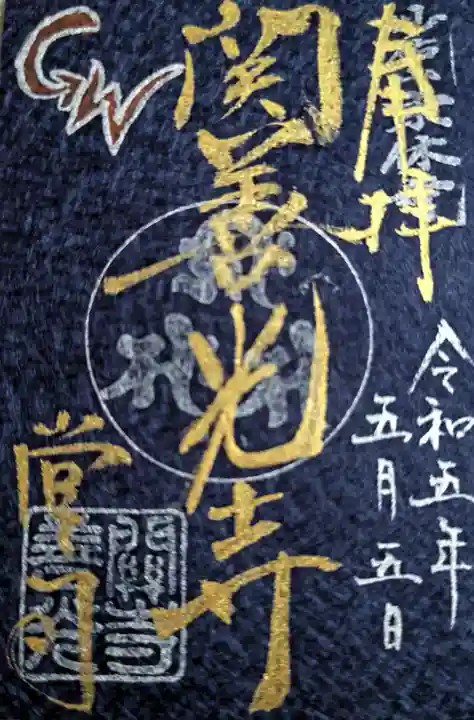 奉拝
令和五年
五月五日
関善光寺
GW
堂司
關善光寺